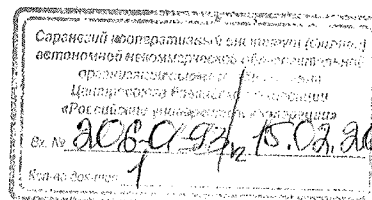 Саранский кооперативный институт (филиал)
автономной некоммерческой образовательной
организации
Центросоюза Российской Федерации
«Российский университет кооперации»
Вх. № 206.0.93/ 15.02.20
Кол-во док-тов 1